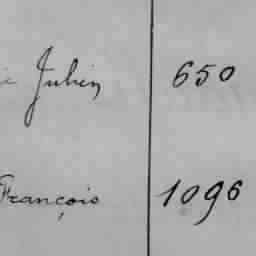 Julien 650
François 1096